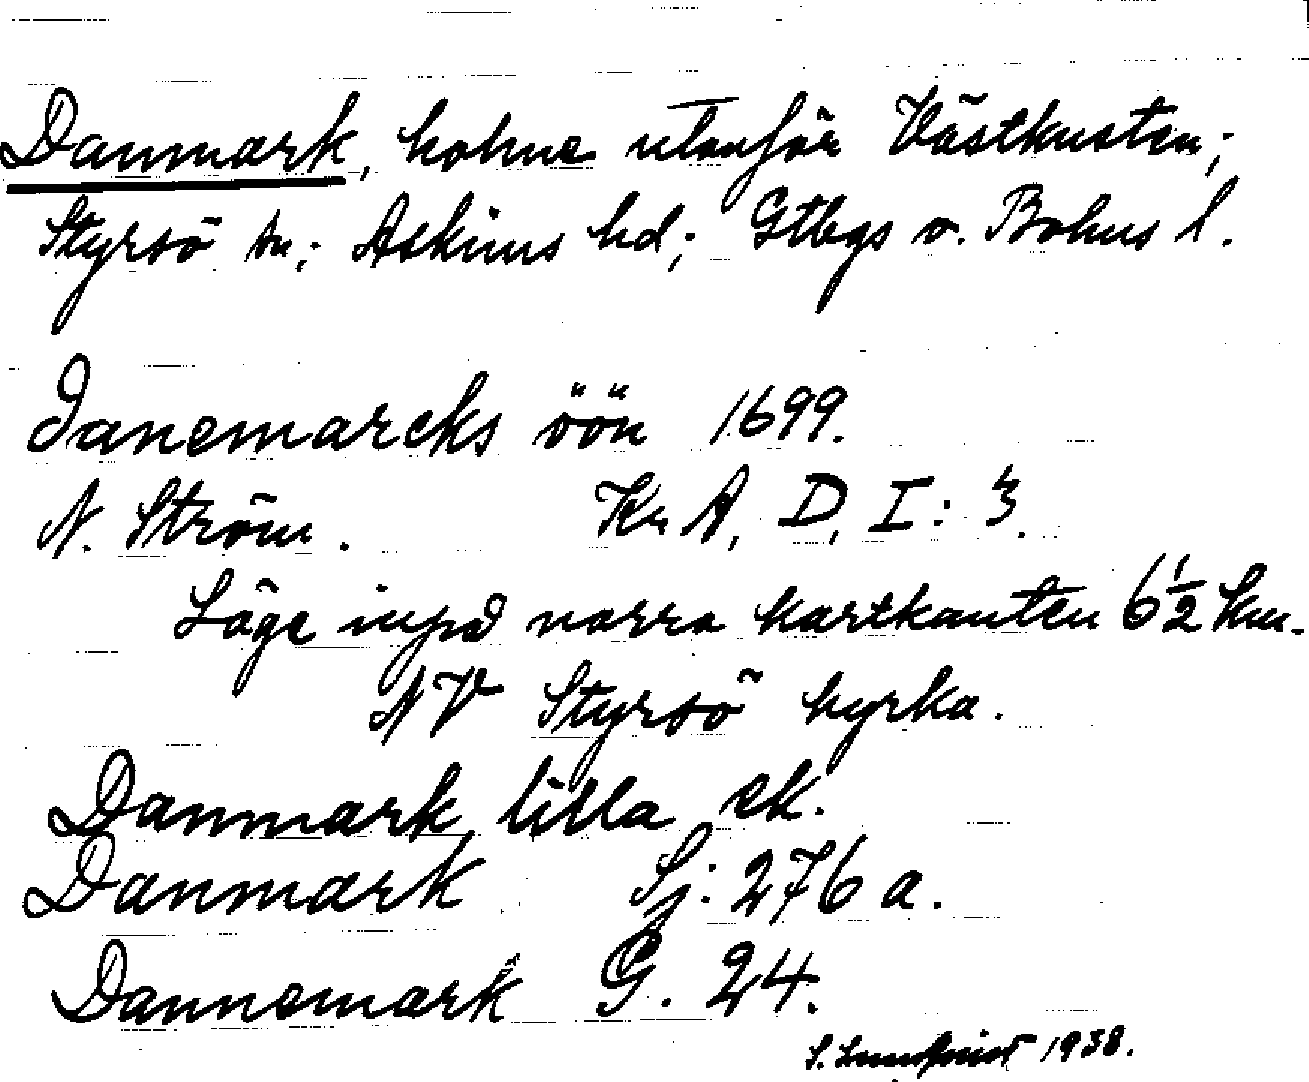 Danmark, holme utanför Västkusten;
Styrsö sn; Askims hd; Gtbgs o. Bohus l.
Danemarcks öön 1699.
N. Ström. Kr A, D, I: 3.
Läge inpå norra kartkanten 6 1/2 km.
NV Styrsö kyrka.
Danmark, lilla ek.
Danmark Sj: 276 a.
Dannemark G. 24.
S. Lundqvist 1938.